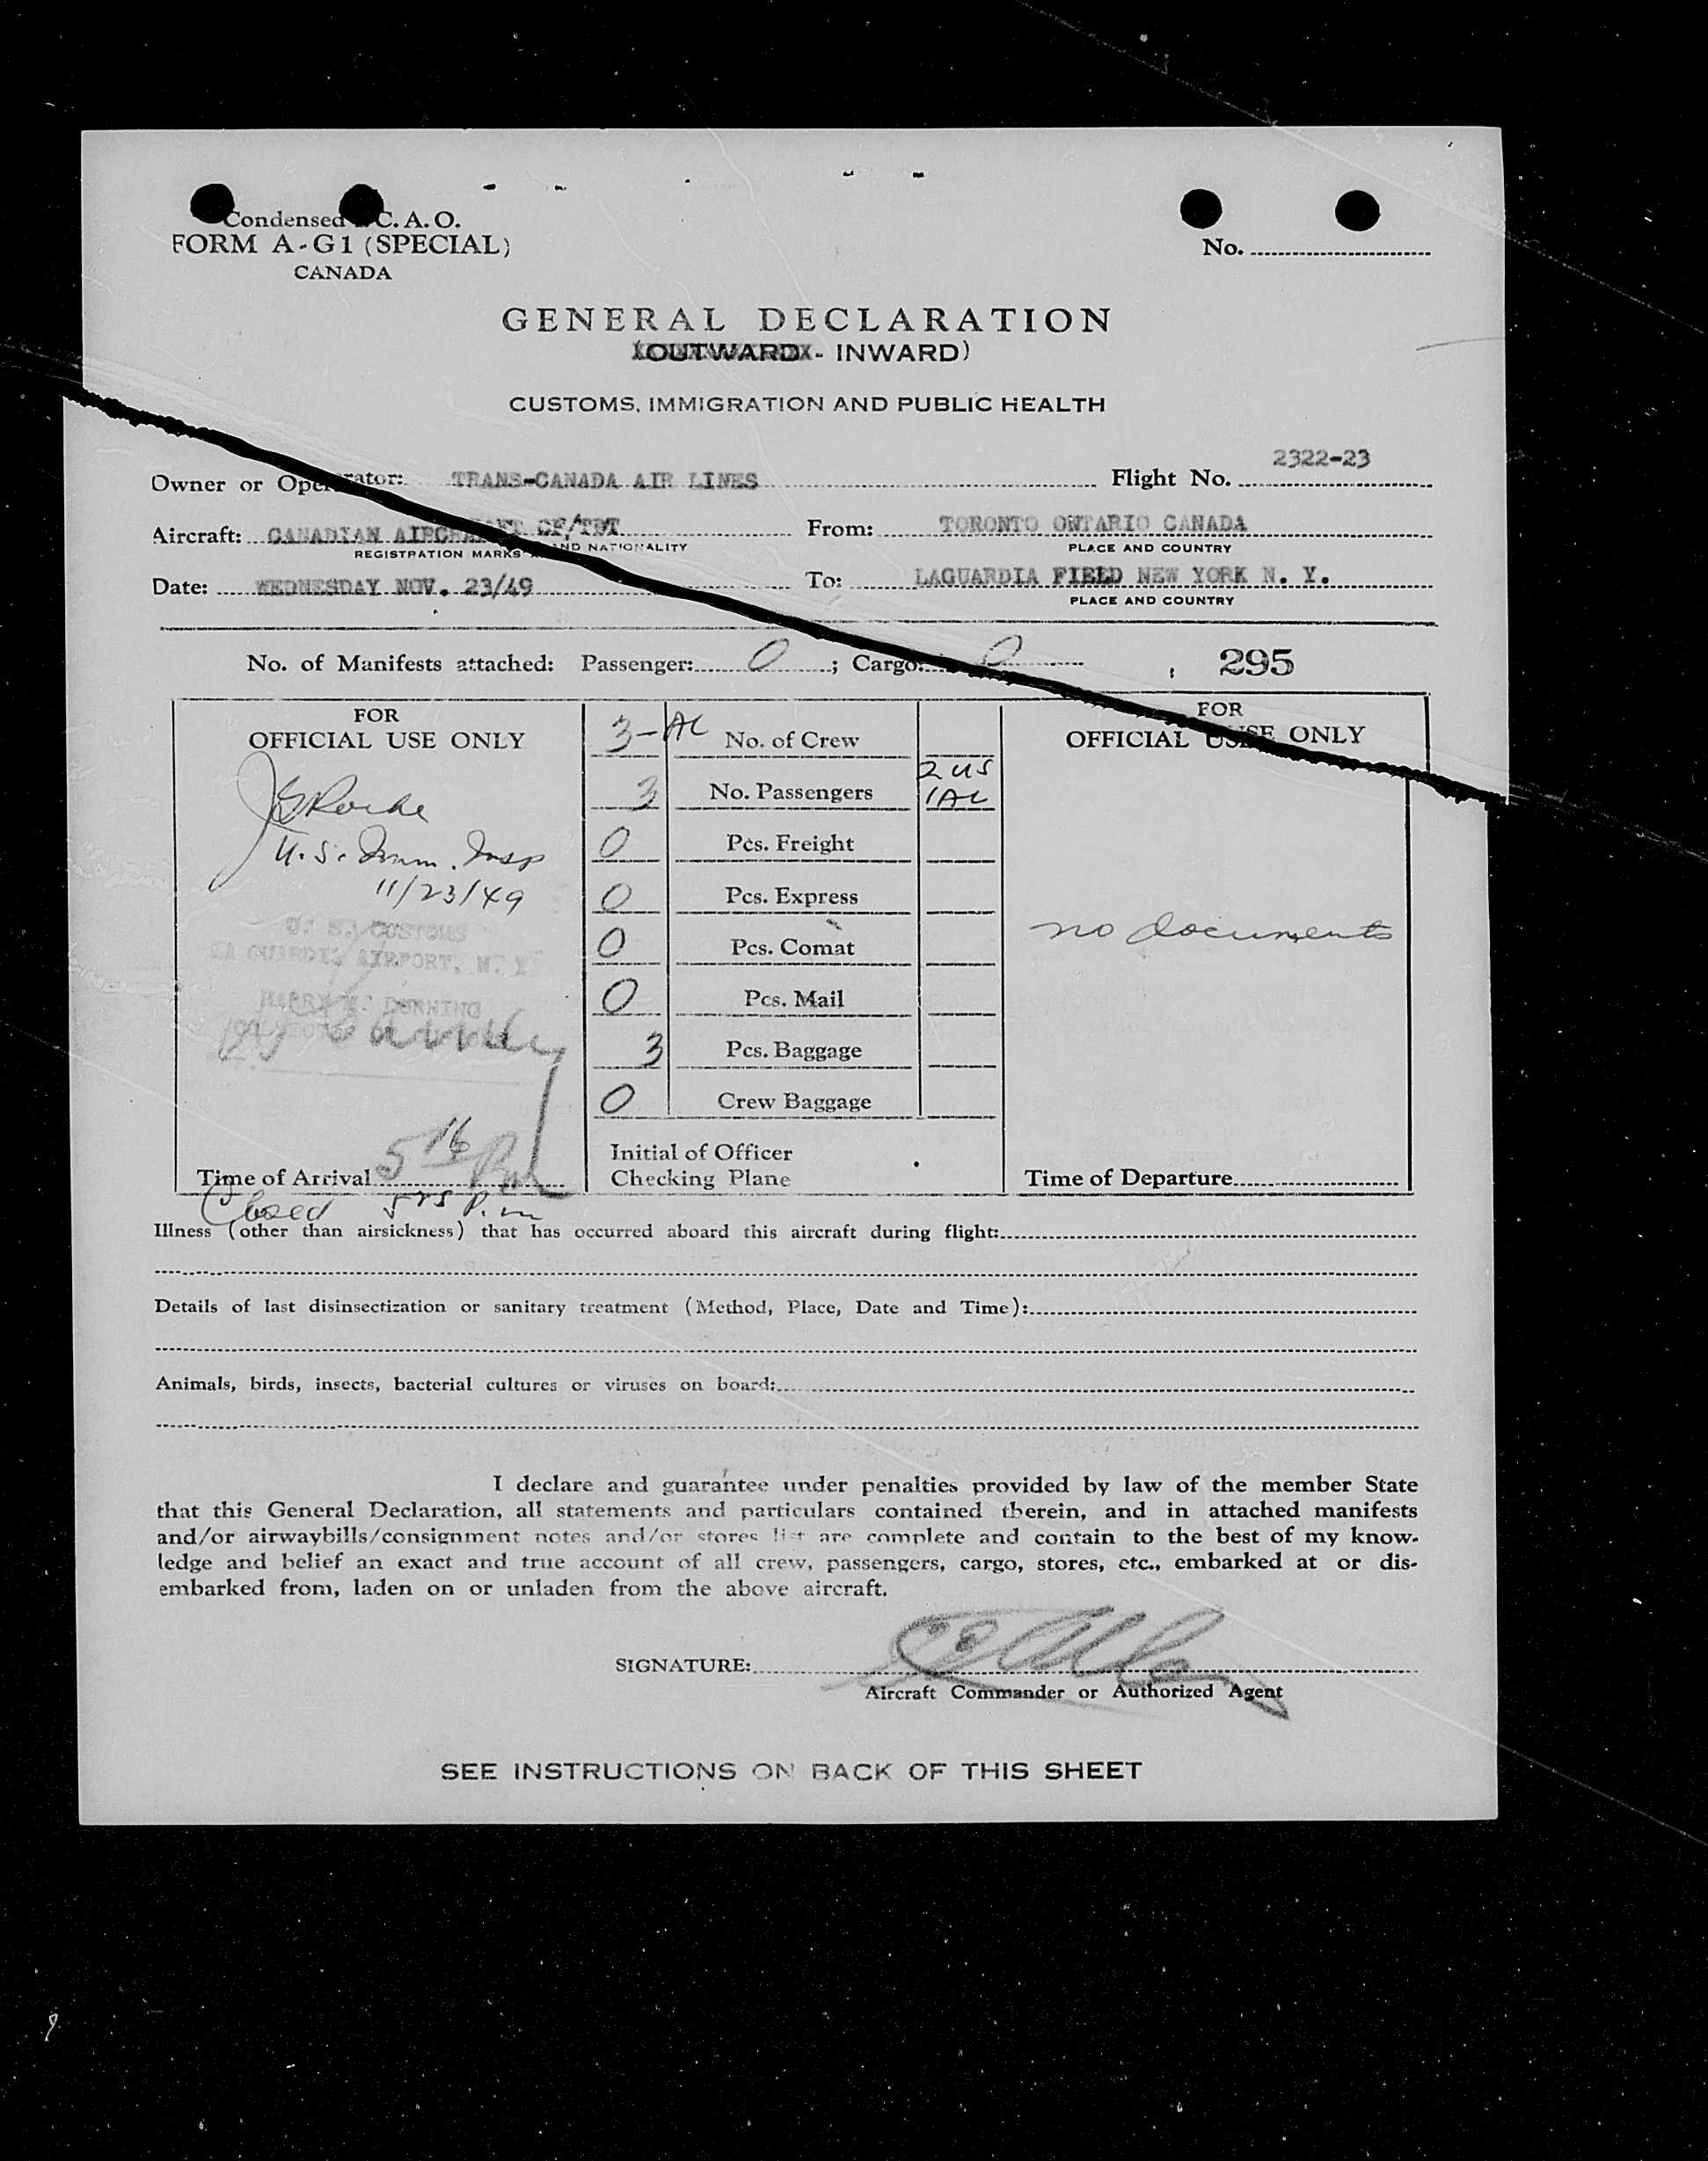 Condensed C. A. O.
FORM A-G1 (SPECIAL)
CANADA
No.
GENERAL DECLARATION
(OUTWARD - INWARD)
CUSTOMS, IMMIGRATION AND PUBLIC HEALTH
Owner or Operator: TRANS-CANADA AIR LINES Flight No. 2322-23
Aircraft: CANADIAN AIRCRAFT From: TORONTO ONTARIO CANADA
REGISTRATION MARKS AND NATIONALITY PLACE AND COUNTRY
Date: WEDNESDAY NOV. 23/49 To: LAGUARDIA FIELD NEW YORK N. Y.
PLACE AND COUNTRY
No. of Manifests attached: Passenger: 0; Cargo: 0 295
FOR
OFFICIAL USE ONLY
U.S. Imm. Insp
11/23/49
U. S. CUSTOMS
LA GUARDIA AIRPORT, N. Y.
Time of Arrival 5 16 Pm
Closed 5 25 P.m
3-AC No. of Crew
3 No. Passengers 2 US
1 AC
0 Pcs. Freight
0 Pcs. Express
0 Pcs. Comat
0 Pcs. Mail
3 Pcs. Baggage
0 Crew Baggage
Initial of Officer
Checking Plane
FOR
OFFICIAL USE ONLY
no documents
Time of Departure
Illness (other than airsickness) that has occurred aboard this aircraft during flight:
Details of last disinsectization or sanitary treatment (Method, Place, Date and Time):
Animals, birds, insects, bacterial cultures or viruses on board:
I declare and guarantee under penalties provided by law of the member State
that this General Declaration, all statements and particulars contained therein, and in attached manifests
and/or airwaybills/consignment notes and/or stores list are complete and contain to the best of my know-
ledge and belief an exact and true account of all crew, passengers, cargo, stores, etc., embarked at or dis-
embarked from, laden on or unladen from the above aircraft.
SIGNATURE:
Aircraft Commander or Authorized Agent
SEE INSTRUCTIONS ON BACK OF THIS SHEET